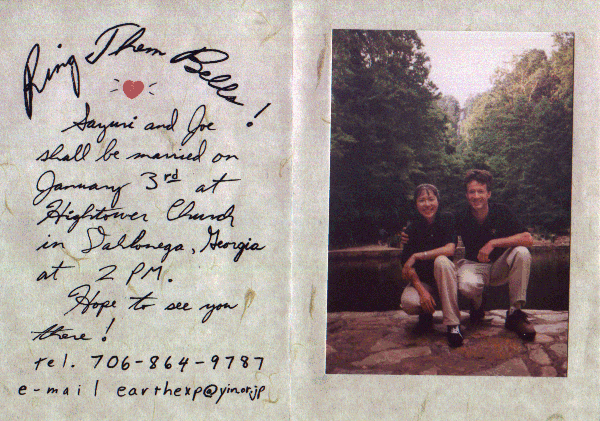 Ring Them Bells!
Sayuri and Joe
shall be married on
January 3rd at
Hightower Church
in Dahlonega, Georgia
at 2 PM.
Hope to see you
there!
tel. 706-864-9787
e-mail earthexp@yin.or.jp